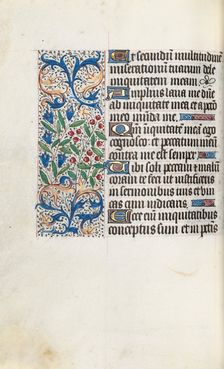 Et secundum multitudinem
miserationum tuarum dele
iniquitatem meam
Amplius lava me
ab iniquitate mea et a peccato
meo munda me
iniquitatem meam ego
cognosco et peccatum meum
contra me est semper
Tibi soli peccavi et malum
coram te feci ut iustificeris
in sermonibus tuis et vin
cas cum iudicaris
Ecce enim iniquitatibus
conceptus sum et in pctis